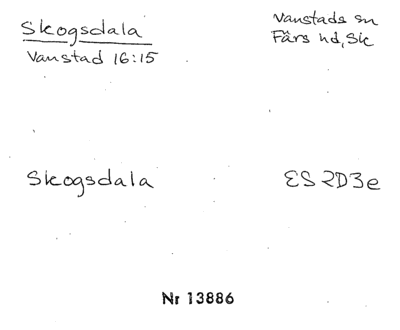 Skogsdala
Vanstad 16:15
Vanstads sn
Färs hd, Sk
Skogsdala
ES 2D3e
Nr 13886